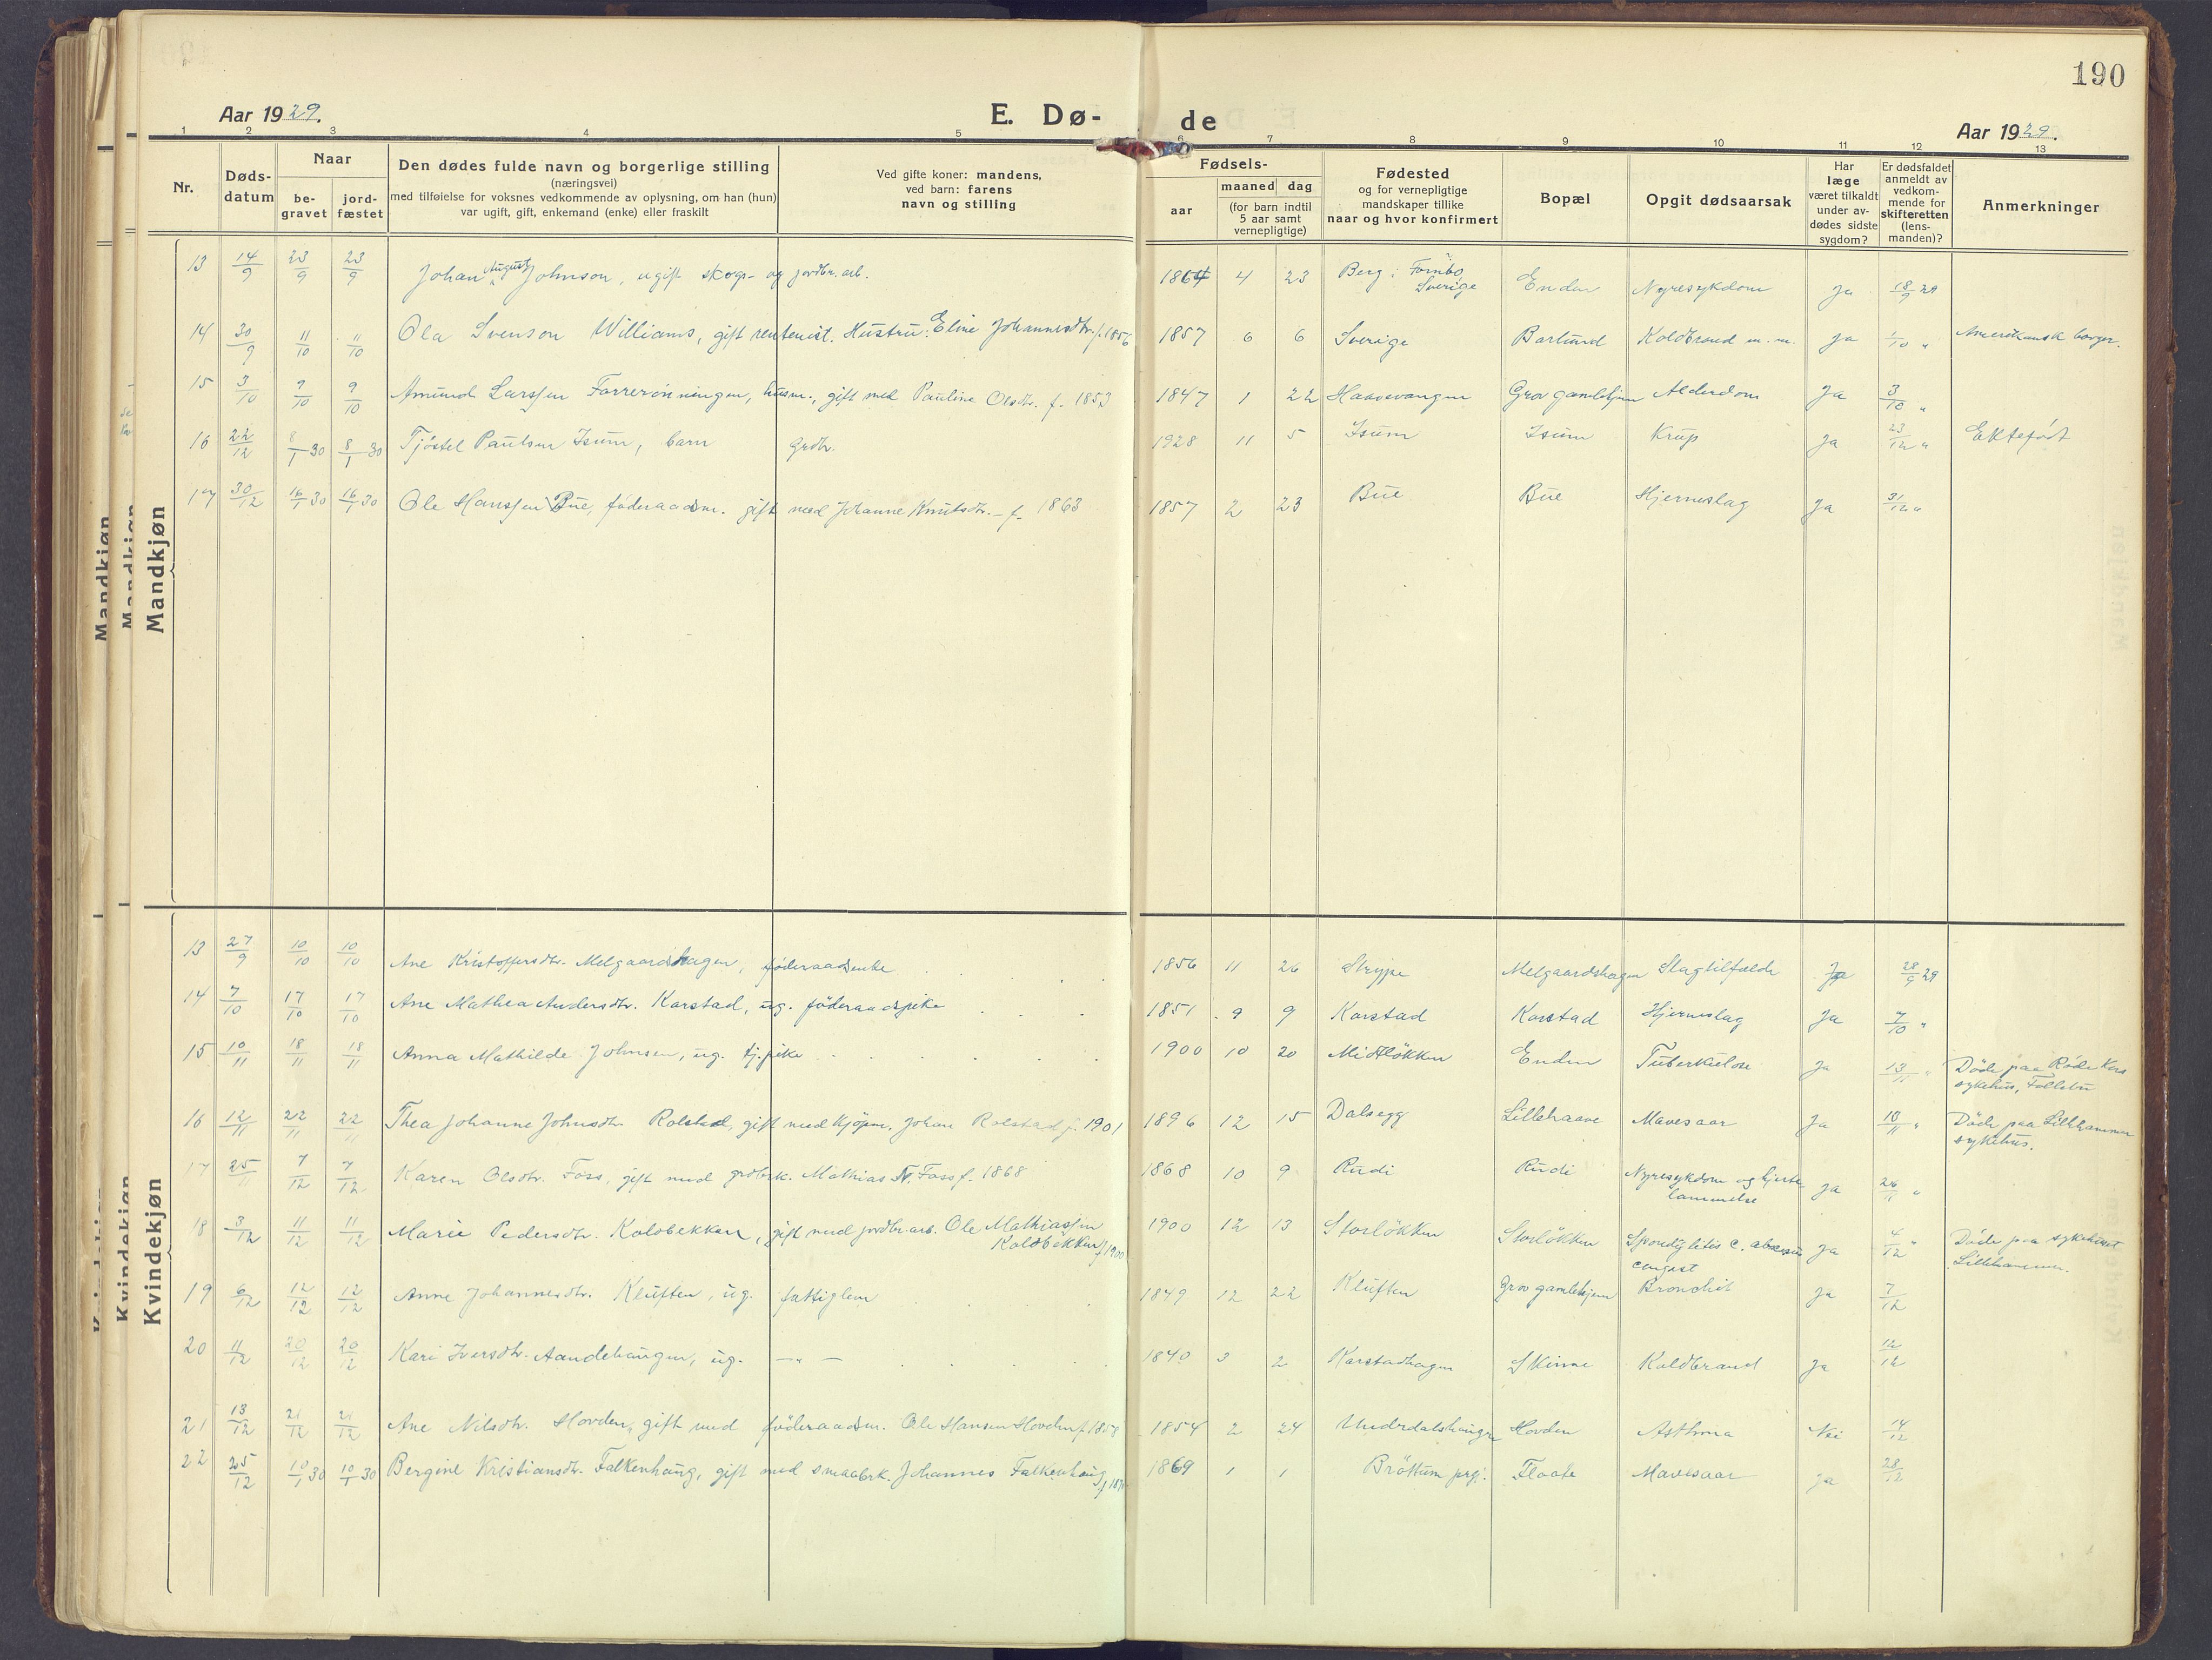 190
Aar 1929. E. Dø- de Aar 1929.
1 2 3 4 5 6 7 8 9 10 11 12 13
Nr.
Døds-
datum
Naar
be-
gravet
jord-
fæstet
Den dødes fulde navn og borgerlige stilling
(næringsvei)
med tilføielse for voksnes vedkommende av oplysning, om han (hun)
var ugift, gift, enkemand (enke) eller fraskilt
Ved gifte koner: mandens,
ved barn: farens
navn og stilling
Fødsels-
aar
maaned dag
(for barn indtil
5 aar samt
vernepligtige)
Fødested
og for vernepligtige
mandskaper tillike
naar og hvor konfirmert
Bopæl
Opgit dødsaarsak
Har
læge
været tilkaldt
under av-
dødes sidste
sygdom?
Er dødsfaldet
anmeldt av
vedkom-
mende for
skifteretten
(lens-
manden)?
Anmerkninger
Mandkjøn
13 14/9 23/9 23/9 Johan August Johnson, ugift skogs- og jordbr. arb. 1864 4 23 Berg i Sverige Enden Nyresykdom Ja 18/9 29
14 30/9 11/10 11/10 Ola Svenson Williams, gift rentenist. Hustru: Eline Johannesdtr. f. 1856 1857 6 6 Sverige Barlund Koldbrand m.m. Ja 1/10 " Amerikansk borger.
15 3/10 9/10 9/10 Amund Larssen husm., gift med Pauline Olsdtr. f. 1853 1847 1 22 Haavevangen Grov gamlehjem Alderdom Ja 3/10 "
16 22/12 8/1 30 8/1 30 Tjøstel Paulsen Isum, barn grdbr. 1928 11 5 Isum Isum Krup Ja 23/12 " Ektefødt
17 30/12 16/1 30 16/1 30 Ole Hanssen Bue, føderaadsm. gift med Johanne Knutsdtr. - f. 1863 1857 2 23 Bue Bue Hjerneslag Ja 31/12 "
Kvindekjøn
13 27/9 10/10 10/10 Ane Kristoffersdtr. Melgaardshagen, føderaadsenke 1856 11 26 Strype Melgaardshagen Slagtilfælde Ja 28/9 29
14 7/10 17/10 17/10 Ane Mathea Andersdtr. Karstad, ug. føderaadspike 1851 9 9 Karstad Karstad Hjerneslag Ja 7/10 "
15 10/11 18/11 18/11 Anna Mathilde Johnsen, ug. tj.pike 1900 10 20 Midtløkken Enden Tuberkulose Ja 13/11 " Døde paa Røde Kors
sykehus, Follebu
16 12/11 22/11 22/11 Thea Johanne Johnsdtr. Rolstad, gift med kjøpm. Johan Rolstad f. 1901 1896 12 15 Dalsegg Lillehaave Mavesaar Ja 18/11 " Døde paa Lillehammer
sykehus.
17 25/11 7/12 7/12 Karen Olsdtr. Foss, gift med grdbrk. Mathias N. Foss f. 1868 1868 10 9 Rudi Rudi Nyresykdom og hjerte-
lammelse Ja 26/11 "
18 3/12 11/12 11/12 Marie Pedersdtr. Koldbekken, gift med jordbr. arb. Ole Mathiassen
Koldbekken f. 1900 1900 12 13 Storløkken Storløkken Ja 4/12 " Døde paa sykehuset
Lillehammer.
19 6/12 12/12 12/12 Anne Johannesdtr. Kluften, ug. fattiglem 1849 12 22 Kluften Grov gamlehjem Bronchit Ja 7/12
20 11/12 20/12 20/12 Kari Iversdtr. Aandehaugen, ug. — " — 1840 3 2 Karstadhagen Skinne Koldbrand Ja 12/12
21 13/12 21/12 21/12 Ane Nilsdtr. Hovden, gift med føderaadsm. Ole Hansen Hovden 1854 2 24 Hovden Asthma Nei 14/12
22 25/12 10/1 30 10/1 30 Bergine Kristiansdtr. Falkenhaug, gift med smaabrk. Johannes Falkenhaug 1869 1 1 Brøttum prgj. Floate Mavesaar Ja 28/12